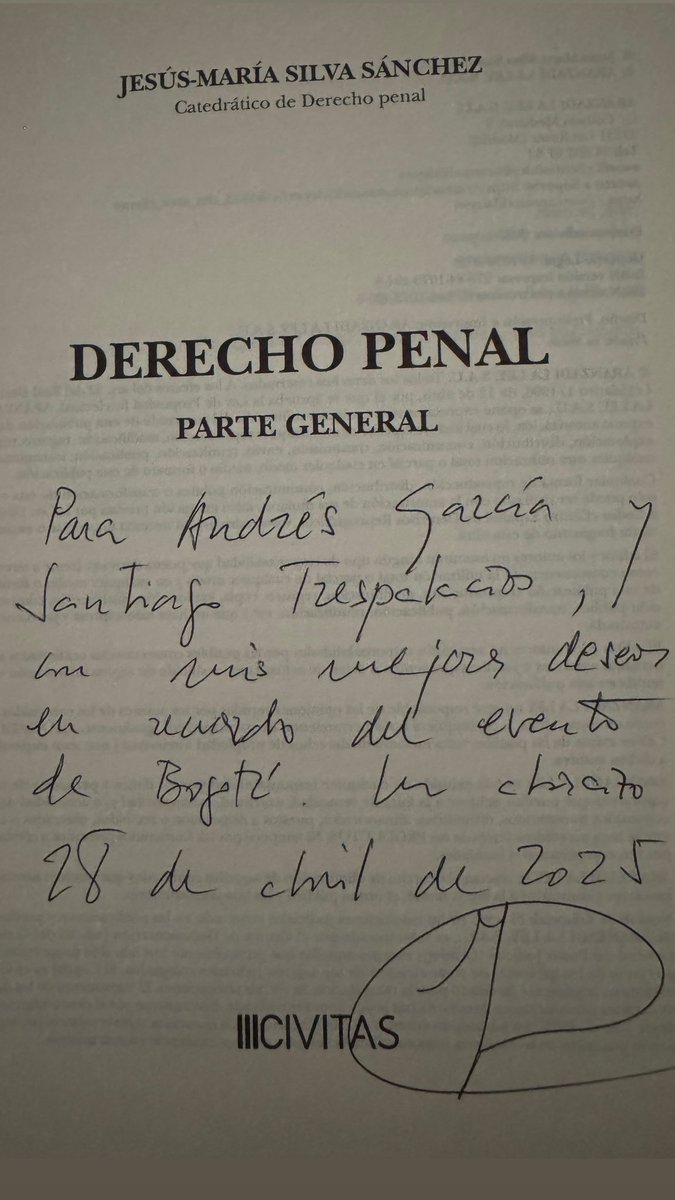 JESÚS-MARÍA SILVA SÁNCHEZ
Catedrático de Derecho penal
DERECHO PENAL
PARTE GENERAL
Para Andrés García y
Santiago Trespalacios,
con mis mejores deseos
en recuerdo del evento
de Bogotá. Un abrazo
28 de abril de 2025
CIVITAS